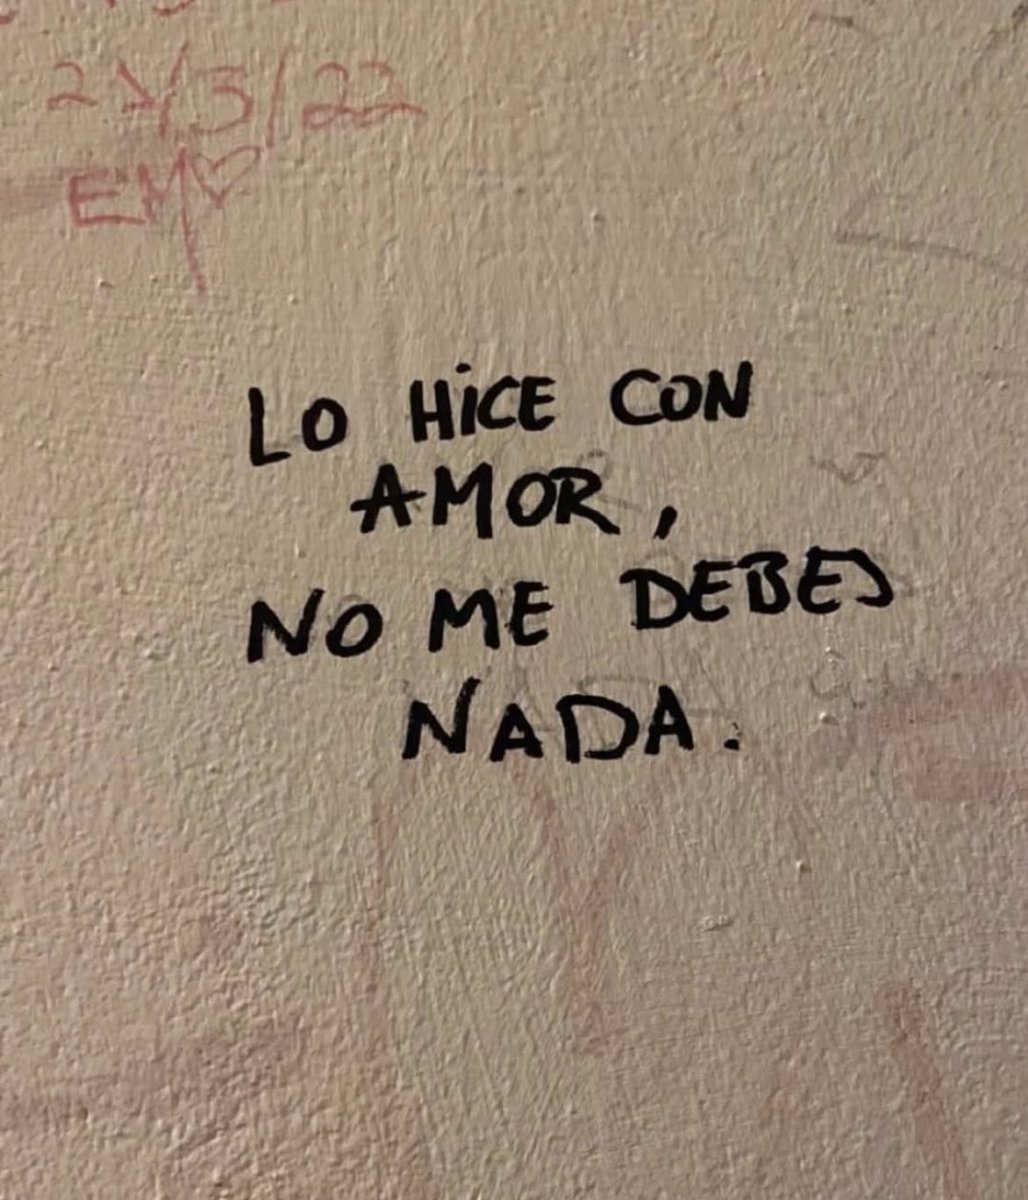 EM♡
LO HiCE CON
AMOR,
NO ME DEBES
NADA.